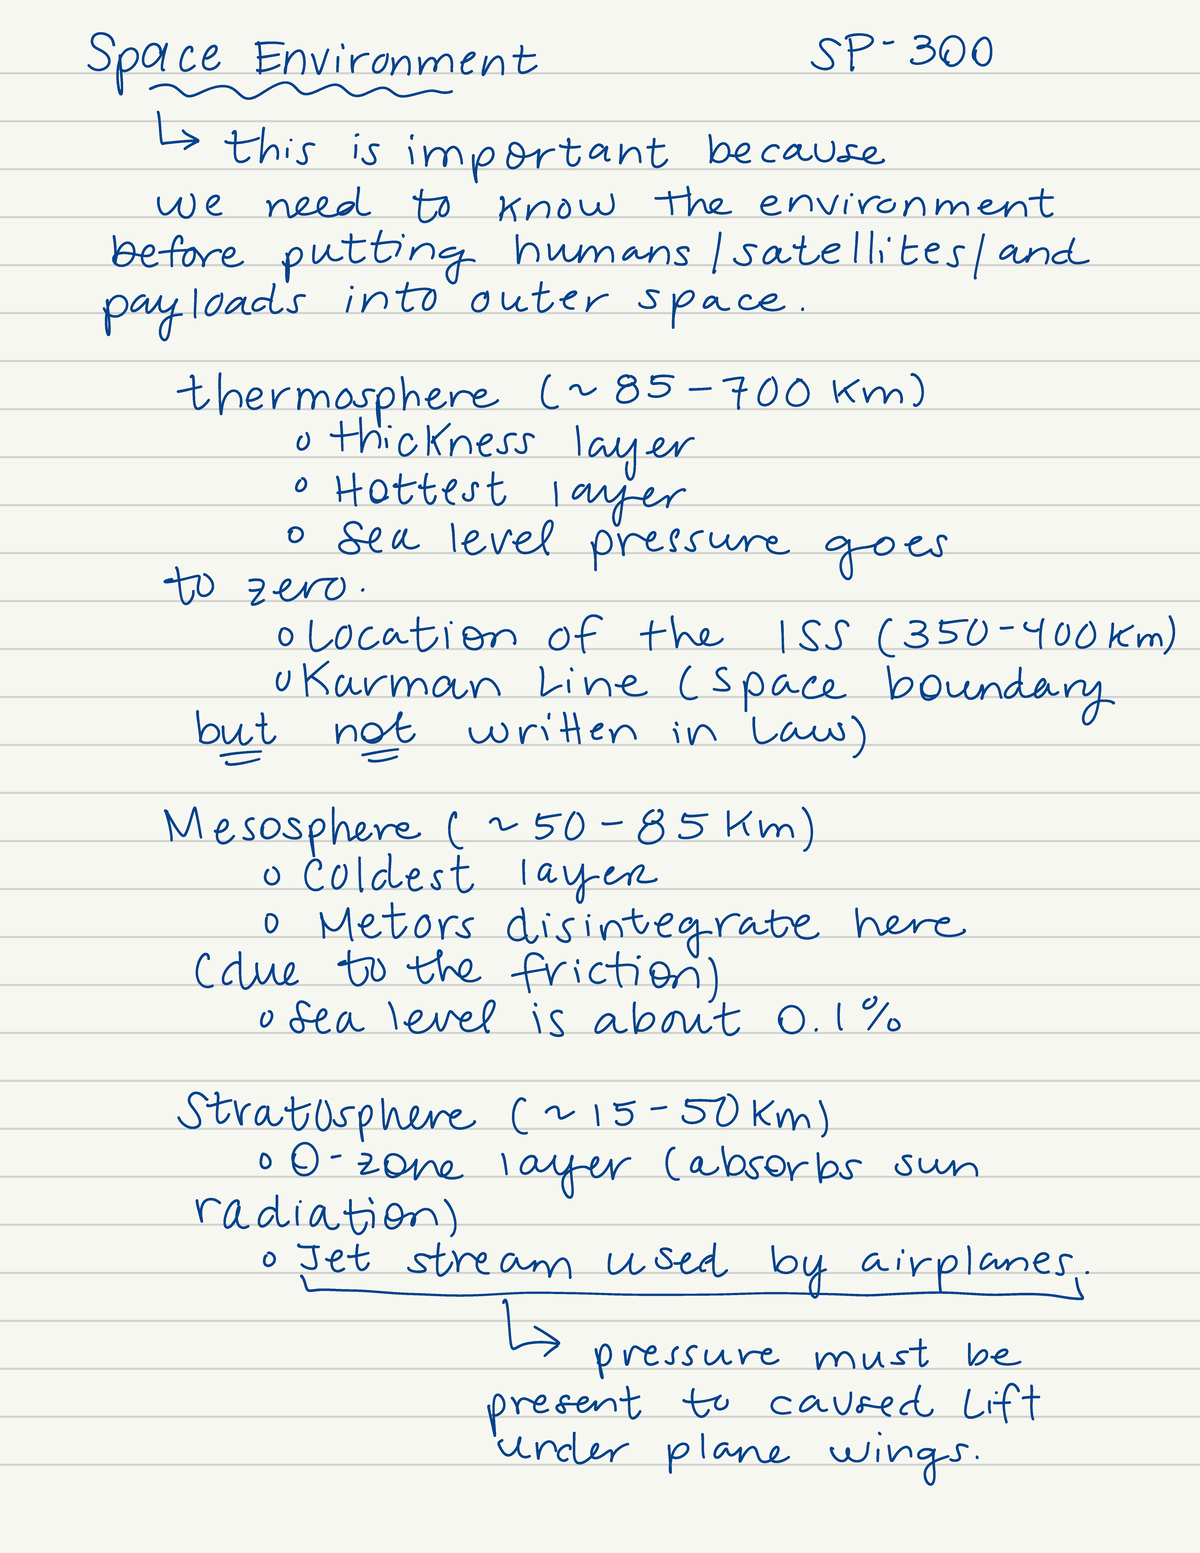 Space Environment SP-300
↳ this is important because
we need to know the environment
before putting humans/satellites/and
payloads into outer space.
thermosphere (~85-700 Km)
o thickness layer
o Hottest layer
o Sea level pressure goes
to zero.
o Location of the ISS (350-400Km)
o Karman Line (space boundary
but not written in Law)
Mesosphere (~50-85 Km)
o Coldest layer
o Metors disintegrate here
(due to the friction)
o Sea level is about 0.1%
Stratosphere (~15-50Km)
o O-zone layer (absorbs sun
radiation)
o Jet stream used by airplanes.
↳ pressure must be
present to caused Lift
under plane wings.